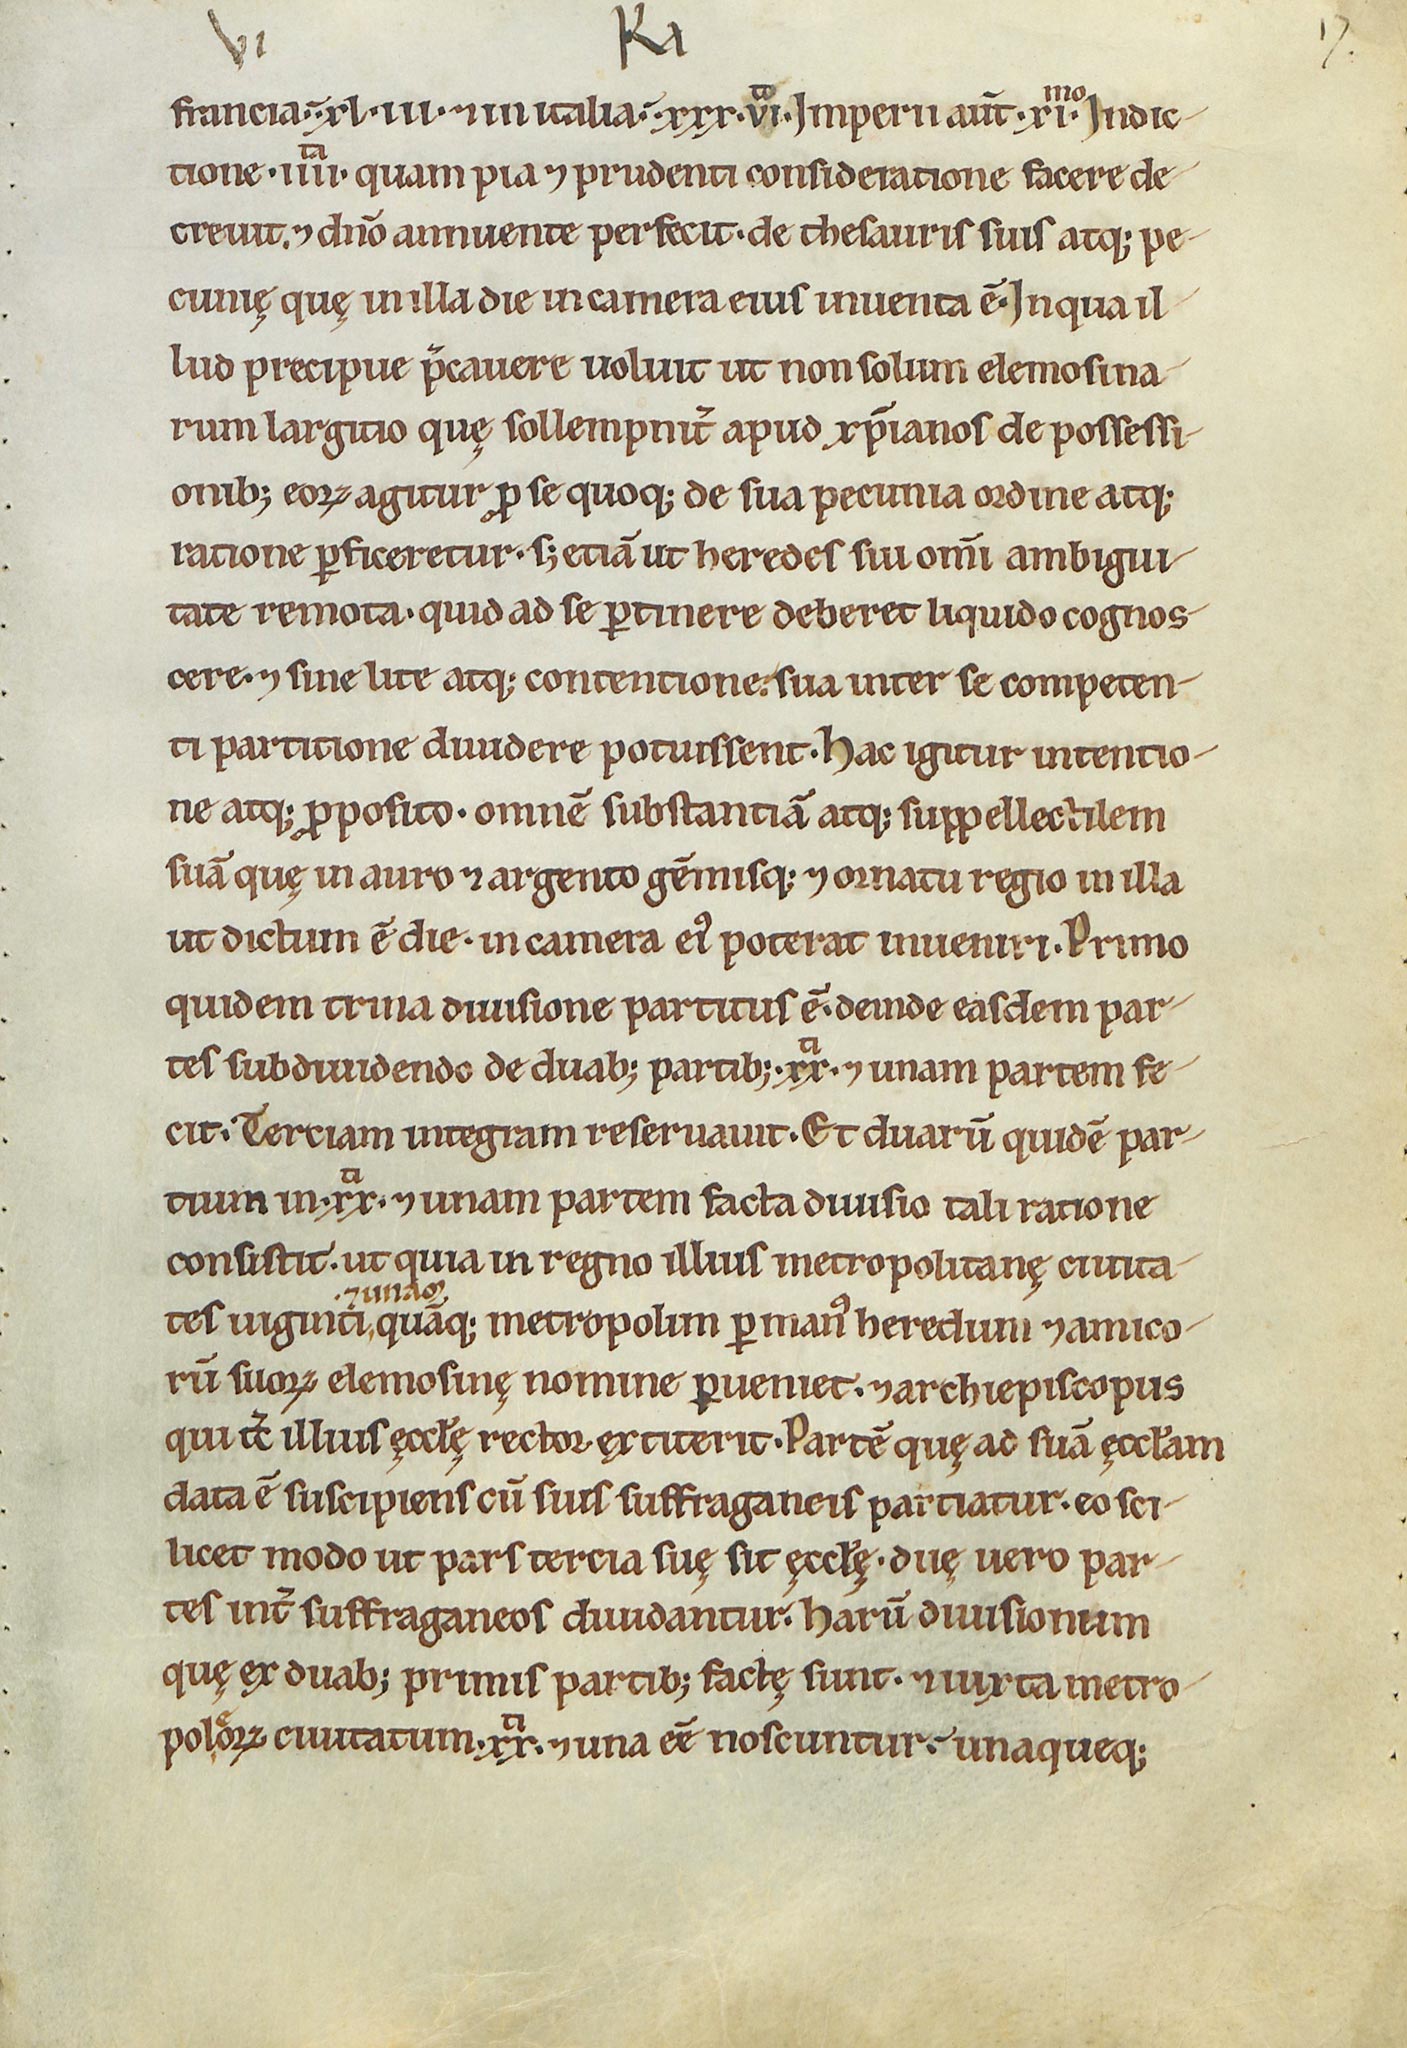 VI Ka 17.
francia·͂ xl·iii· ⁊ in italia·͂ xxx·vi·ᵗᵃ Imperii aut̃·xi·ᵐᵒ Indic-
tione·iiii·ᵗᵃ quam pia ⁊ prudenti consideratione facere de-
creuit. ⁊ dño annuente perfecit·de thesauris suis atq; pe-
cunię quę in illa die in camera eius inuenta ẽ·In qua il-
lud precipue p̃cauere uoluit ut non solum elemosina-
rum largitio quę sollempnit̃ apud xp̃ianos de possessi-
onib; eoꝝ agitur ꝓ se quoq; de sua pecunia ordine atq;
ratione ꝑficeretur·s; etiã ut heredes sui om̃i ambigui-
tate remota·quid ad se ꝑtinere deberet liquido cognos-
cere·⁊ sine lite atq; contentione·sua inter se competen-
ti partitione diuidere potuissent·hac igitur intentio-
ne atq; ꝓposito·omnẽ substantiã atq; suppellectilem
suã quę in auro ⁊ argento gẽmisq; ⁊ ornatu regio in illa
ut dictum ẽ die·in camera eiꝰ poterat inueniri·Primo
quidem trina diuisione partitus ẽ·deinde easdem par-
tes subdiuidendo de duab; partib;·xx·ᵗⁱ ⁊ unam partem fe-
cit·Terciam integram reseruauit·Et duarũ quidẽ par-
tium in·xx·ᵗⁱ ⁊ unam partem facta diuisio tali ratione
consistit·ut quia in regno illius metropolitanę ciuita-
·⁊ unaq̨
tes uiginti, quãq; metropolim ꝑ manꝰ heredum ⁊ amico-
rũ suoꝝ elemosinę nomine ꝑueniet·⁊ archiepiscopus
qui tc̃ illius ęccł̃ę rector extiterit·Partẽ quę ad suã ęccł̃am
data ẽ suscipiens cũ suis suffraganeis partiatur·eo sci-
licet modo ut pars tercia suę sit ęccł̃ę·duę uero par-
tes int̃ suffraganeos diuidantur·harũ diuisionum
quę ex duab; primis partib; factę sunt·⁊ iuxta metro-
poleoꝝ ciuitatum·xx·ᵗⁱ ⁊ una eẽ noscuntur·unaqueq;